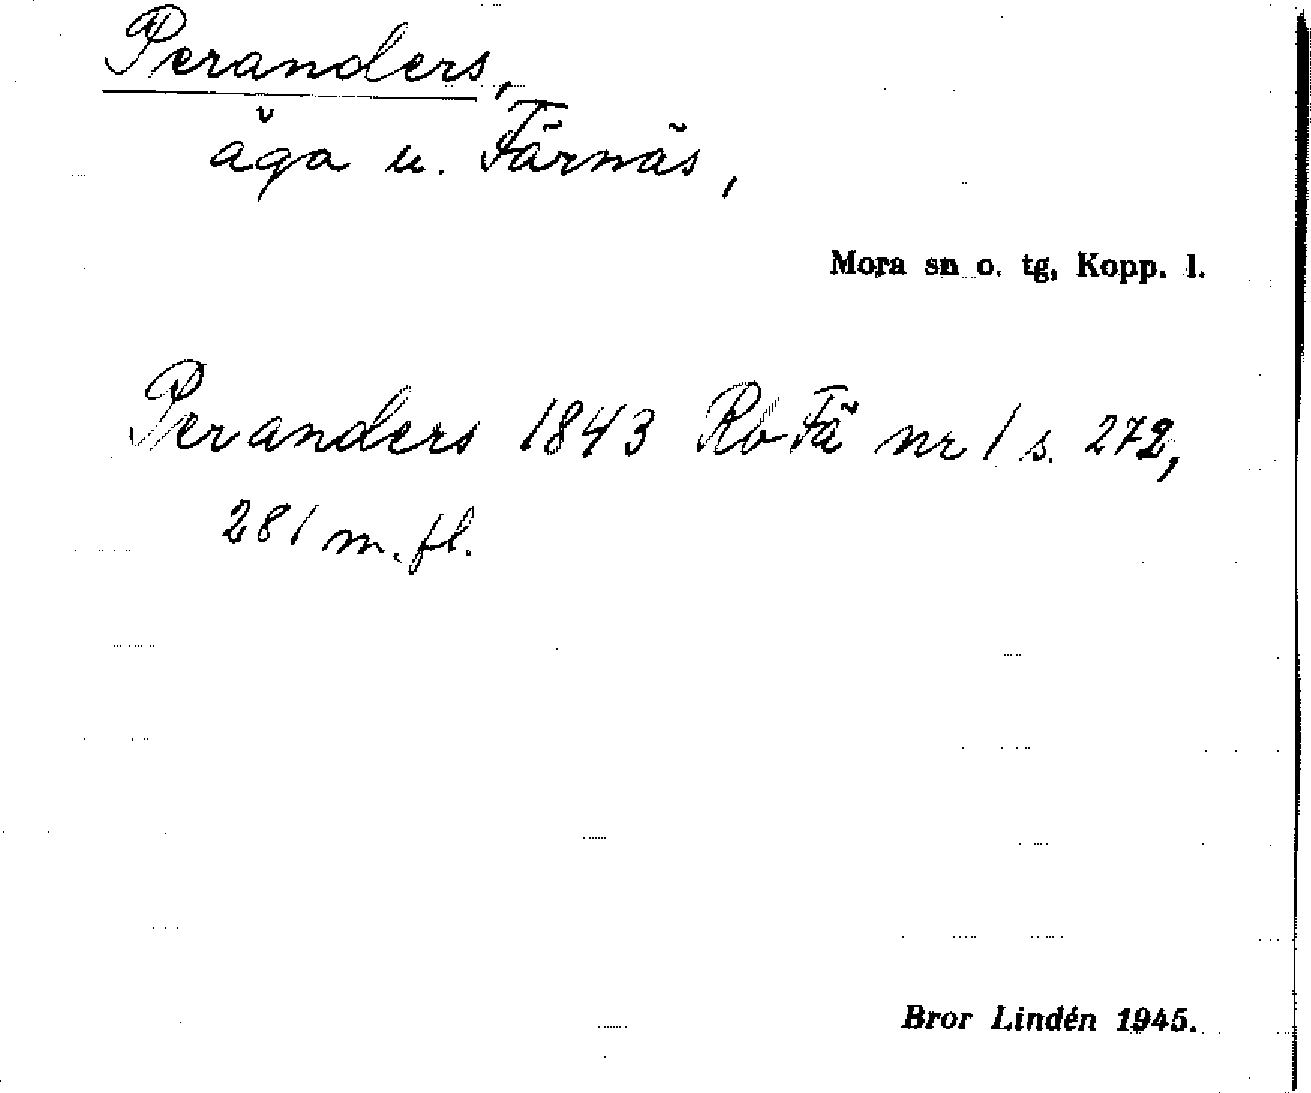 Peranders,
äga u. Färnäs,
Mora sn o. tg, Kopp. l.
Peranders 1843 Rb Fä nr 1 s. 272,
281 m. fl.
Bror Lindén 1945.